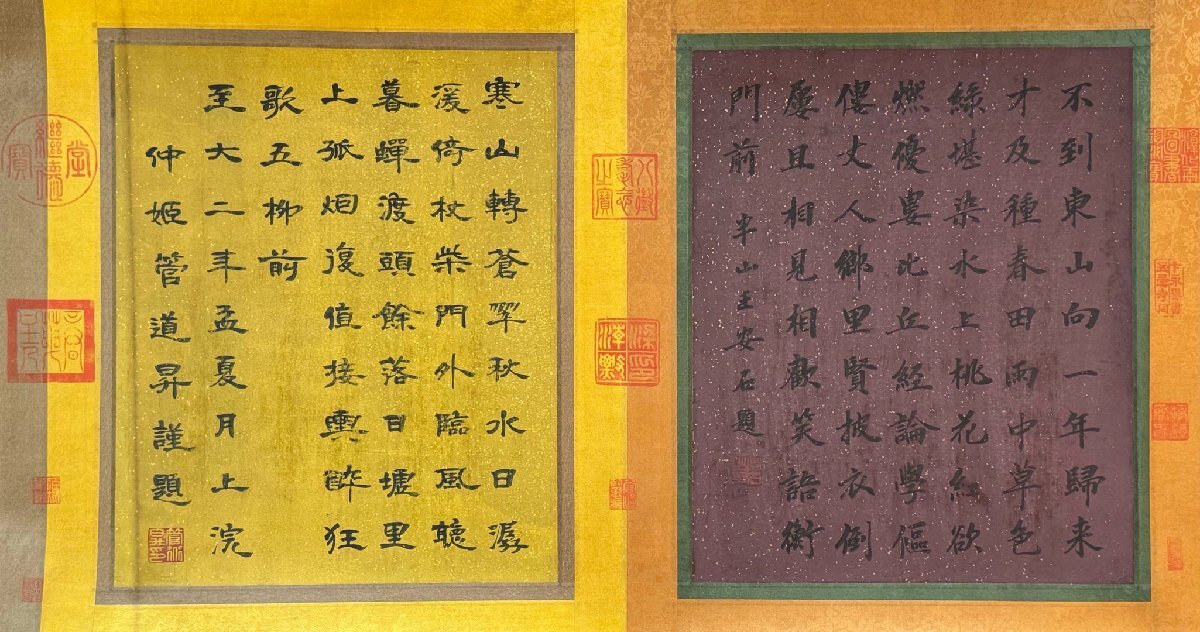 不到東山向一年歸来
才及種春田雨中草色
綠堪染水上桃花紅欲
燃優婁比丘經論學傴
僂丈人鄉里賢披衣倒
屣且相見相歡笑語衡
門前
半山王安石題
八徵耄念之寶
寒山轉蒼翠秋水日潺
湲倚杖柴門外臨風聽
暮蟬渡頭餘落日墟里
上孤烟復值接輿醉狂
歌五柳前
至大二年孟夏月上浣
仲姬管道昇謹題
繼德堂寶